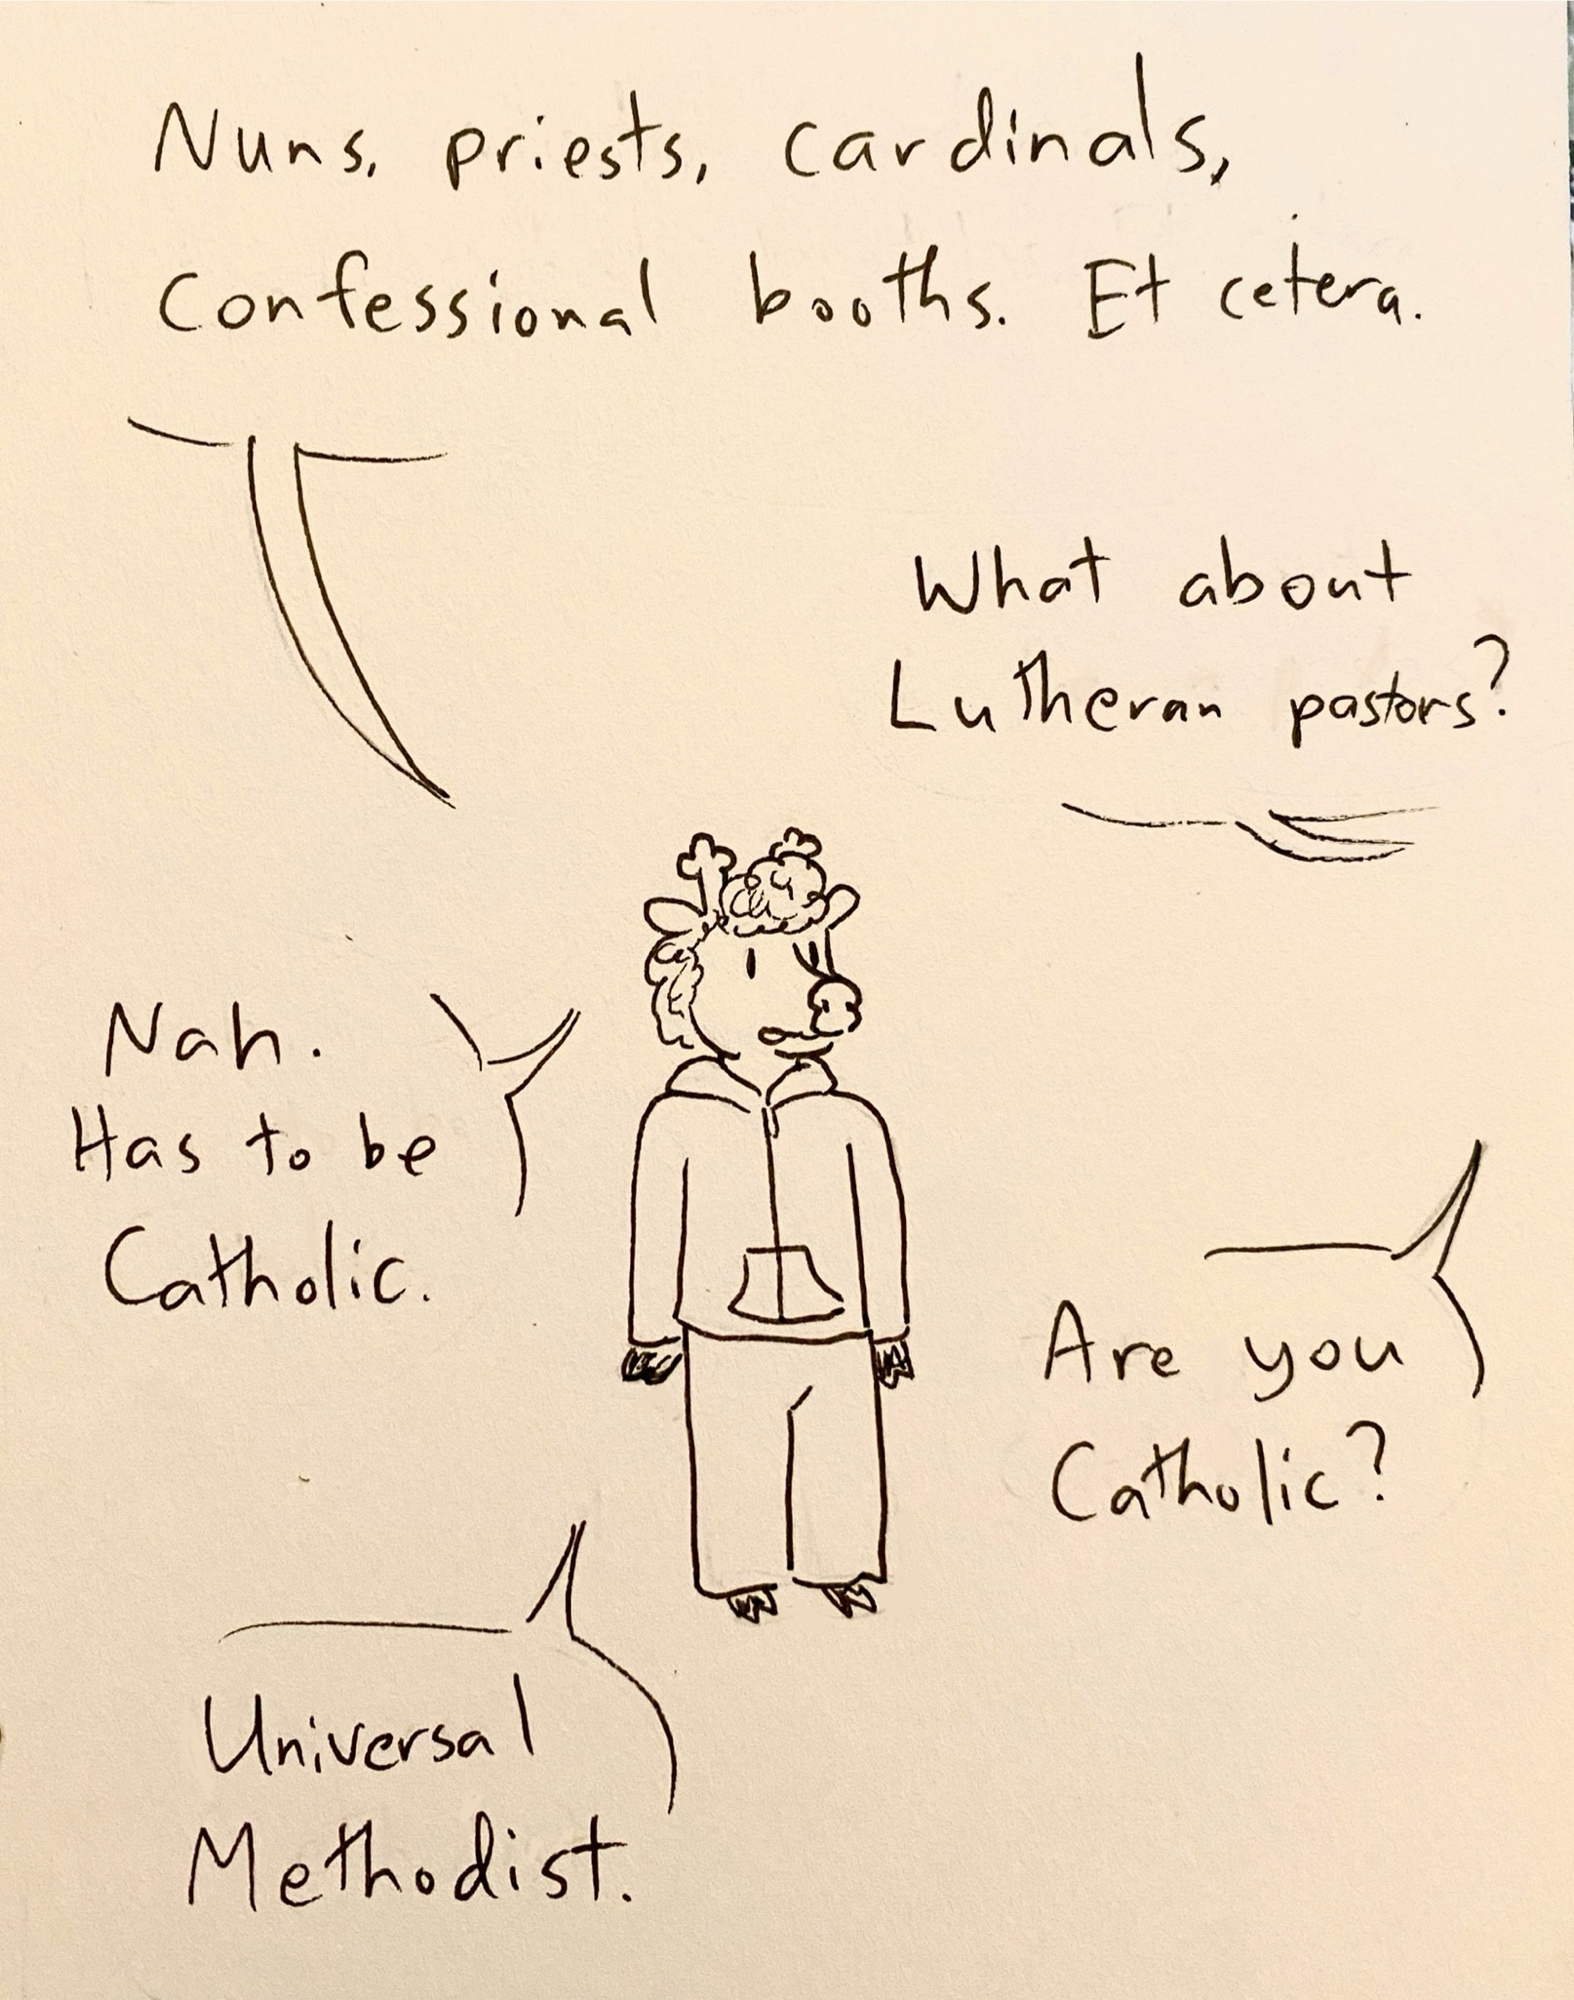 Nuns, priests, cardinals,
Confessional booths. Et cetera.
What about
Lutheran pastors?
Nah.
Has to be
Catholic.
Are you
Catholic?
Universal
Methodist.